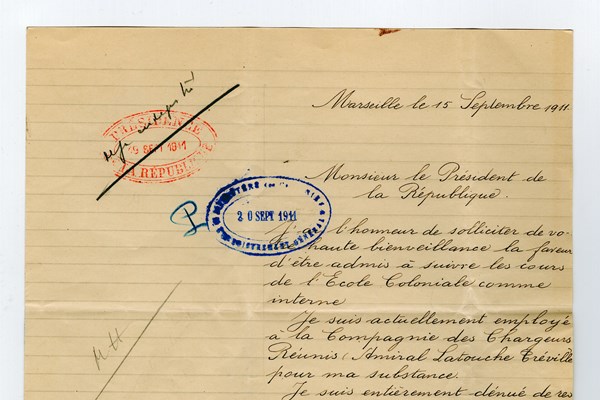 Marseille le 15 Septembre 1911
PRÉSIDENCE
19 SEPT 1911
LA RÉPUBLIQUE
Monsieur le Président de
la République.
MINISTÈRE
20 SEPT 1911
P
J'ai l'honneur de solliciter de vo-
haute bienveillance la faveur
d'être admis à suivre les cours
de l'Ecole Coloniale comme
interne
Je suis actuellement employé
a la Compagnie des Chargeurs
Réunis (Amiral Latouche Tréville
pour ma substance.
Je suis entièrement dénué de res